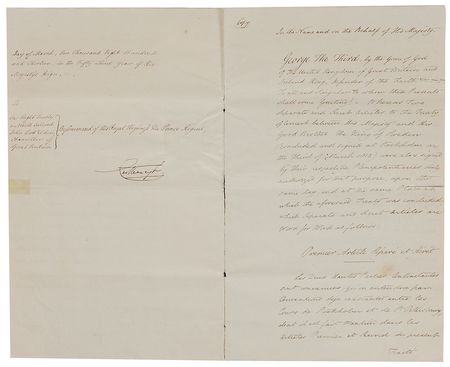 Day of March, One Thousand Eight Hundred
and Thirteen, in the Fifty Third Year of His
Majesty's Reign.
To
Our Right Trusty
John Lord Eldon
Chancellor of
Great Britain
By Command of His Royal Highness The Prince Regent
Castlereagh
In the Name and on the Behalf of His Majesty.
George The Third, by the Grace of God
of the United Kingdom of Great Britain and
Ireland King, Defender of the Faith
To all and Singular to whom these Presents
shall come Greeting! Whereas Two
Separate and Secret Articles to the Treaty
of Concert between His Majesty and His
Good Brother The King of Sweden
concluded and signed at Stockholm on
the Third of March 1813 were also signed
by their respective Plenipotentiaries duly
authorized for that purpose, upon the
same day and at the same Place at
which the aforesaid Treaty was concluded
which Separate and Secret articles are
Word for Word as follows.
Premier Article Séparé et Secret
Les Deux Hautes Parties Contractantes
Conventions déjà existantes entre les
Cours de Stockholm et de St Petersbourg
articles Premier et Second du présent
Traité